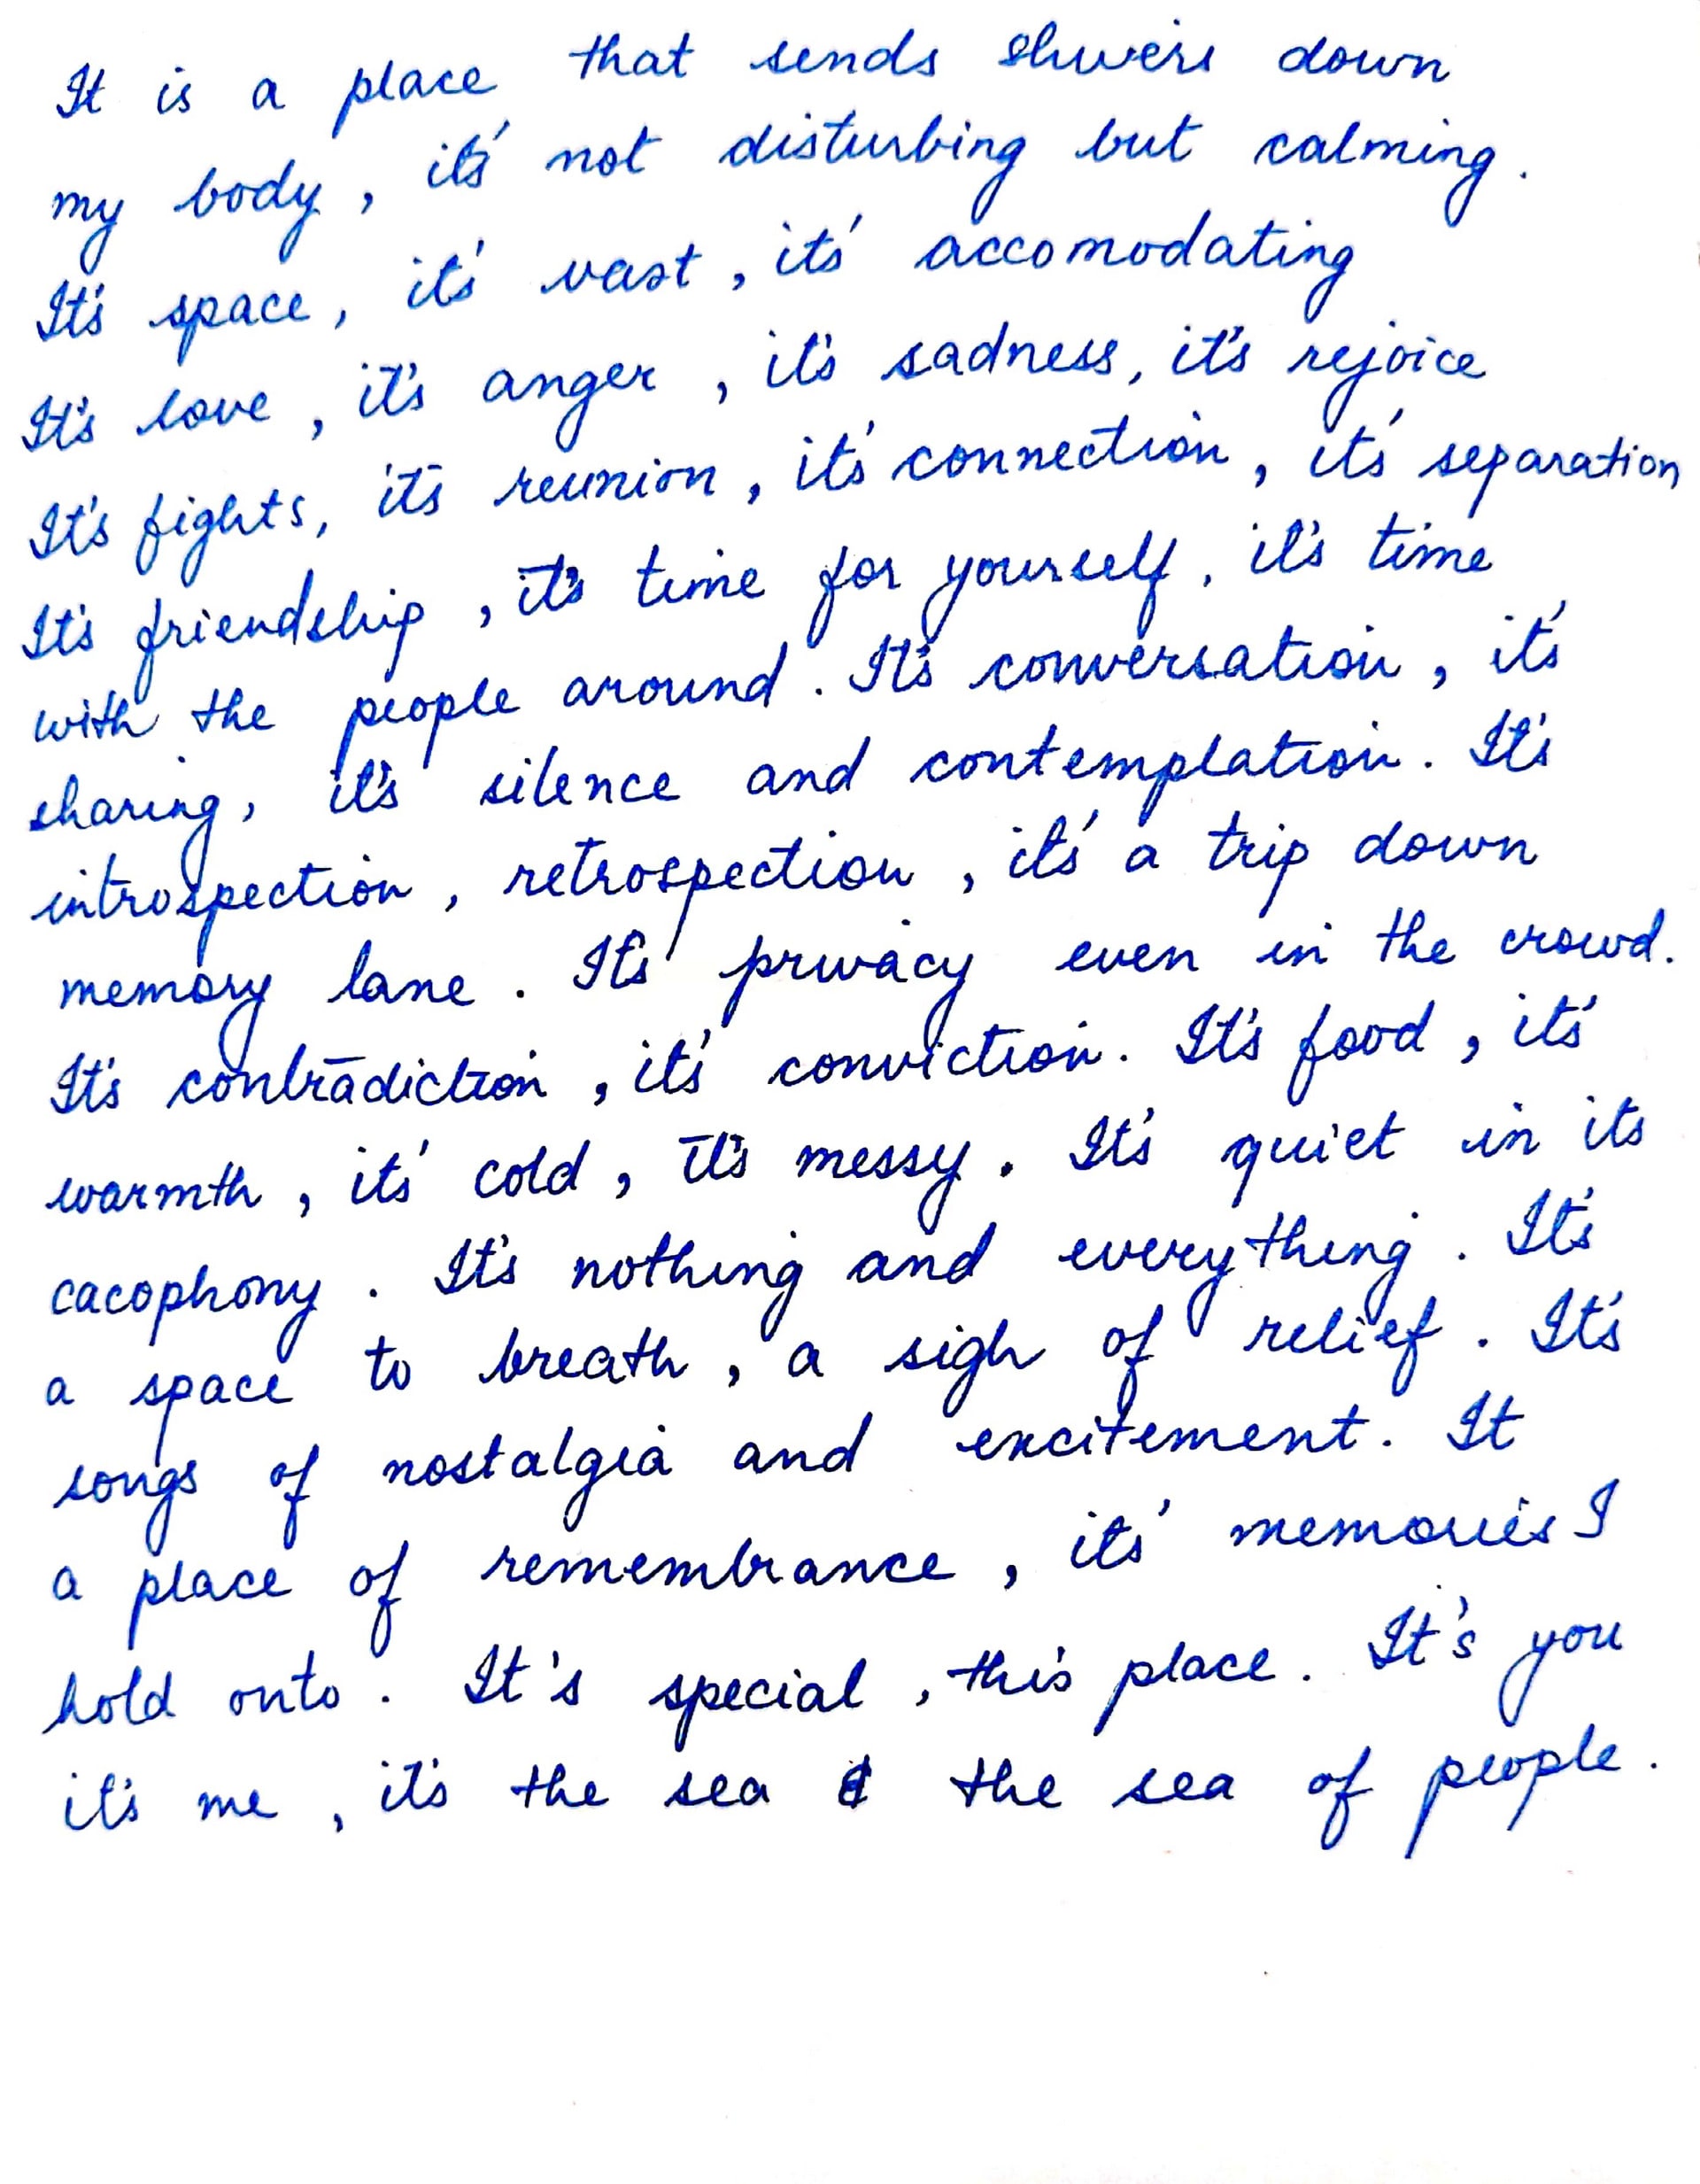 It is a place that sends shivers down
my body, it's not disturbing but calming.
It's space, it's vast, it's accomodating
It's love, it's anger, it's sadness, it's rejoice
It's fights, it's reunion, it's connection, it's separation
It's friendship, it's time for yourself, it's time
with the people around. It's conversation, it's
sharing, it's silence and contemplation. It's
introspection, retrospection, it's a trip down
memory lane. It's privacy even in the crowd.
It's contradiction, it's conviction. It's food, it's
warmth, it's cold, it's messy. It's quiet in its
cacophony. It's nothing and everything. It's
a space to breath, a sigh of relief. It's
songs of nostalgia and excitement. It
a place of remembrance, it's memories I
hold onto. It's special, this place. It's you
it's me, it's the sea & the sea of people.